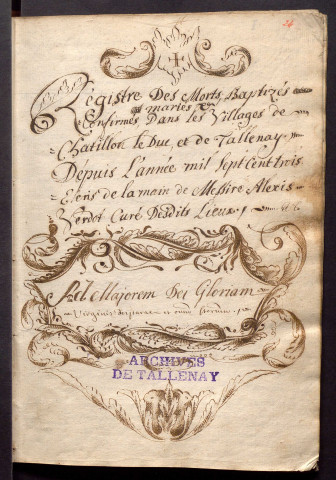 24
Registre Des Morts, Baptizés
et mariés
Confirmés Dans les Villages de
Chatillon le Duc, et de Tallenay
Depuis L'année mil Sept Cent trois
Ecris de la main de Messire Alexis
Verdot Curé Desdits Lieux
Ad Majorem Dei Gloriam
Virginis
ARCHIVES
DE TALLENAY